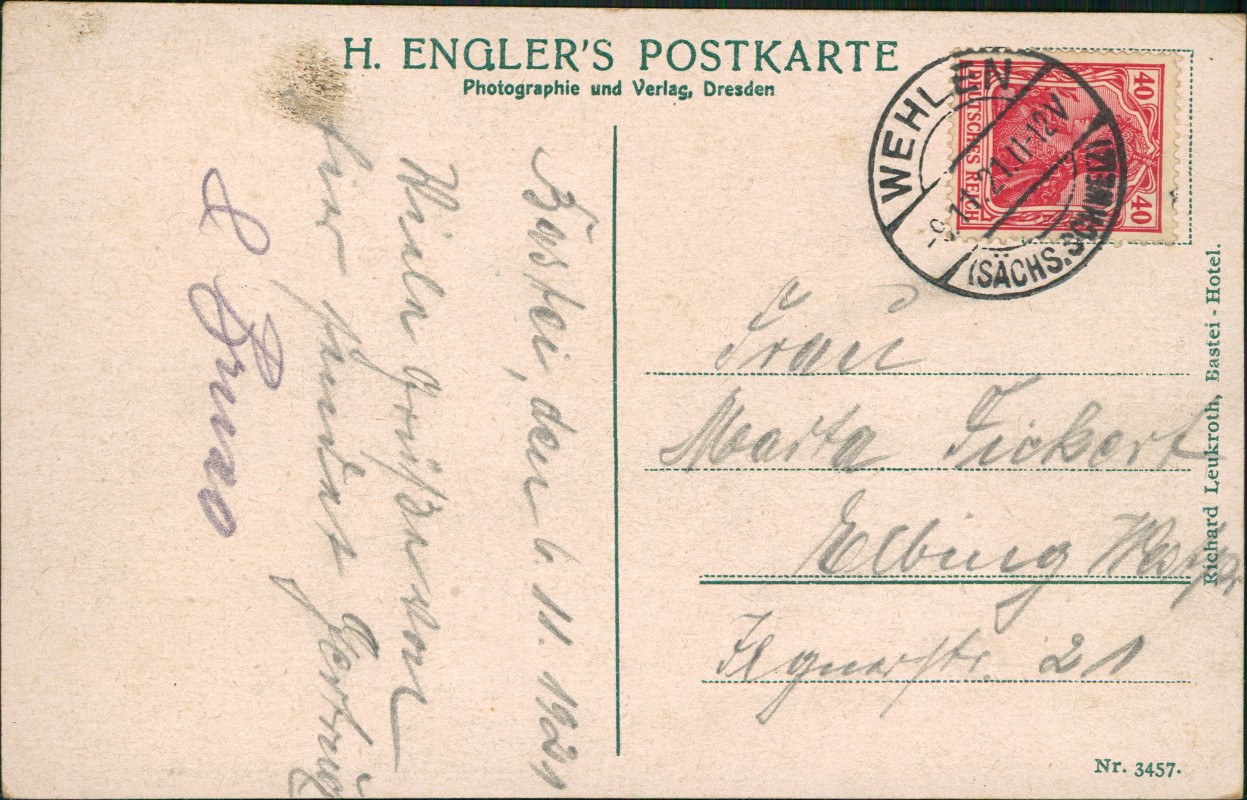 H. ENGLER'S POSTKARTE
Photographie und Verlag, Dresden
WEHLEN
(SÄCHS. SCHWEIZ)
-9.11.21.11-12V
40
40
DEUTSCHES REICH
Bastei, den 6. 11. 1921
Viele Grüße von
hier sendet Gertrud
& Bruno
Frau
Marta Fickert
Elbing
Ilgnerstr. 21
Richard Leukroth, Bastei-Hotel.
Nr. 3457.